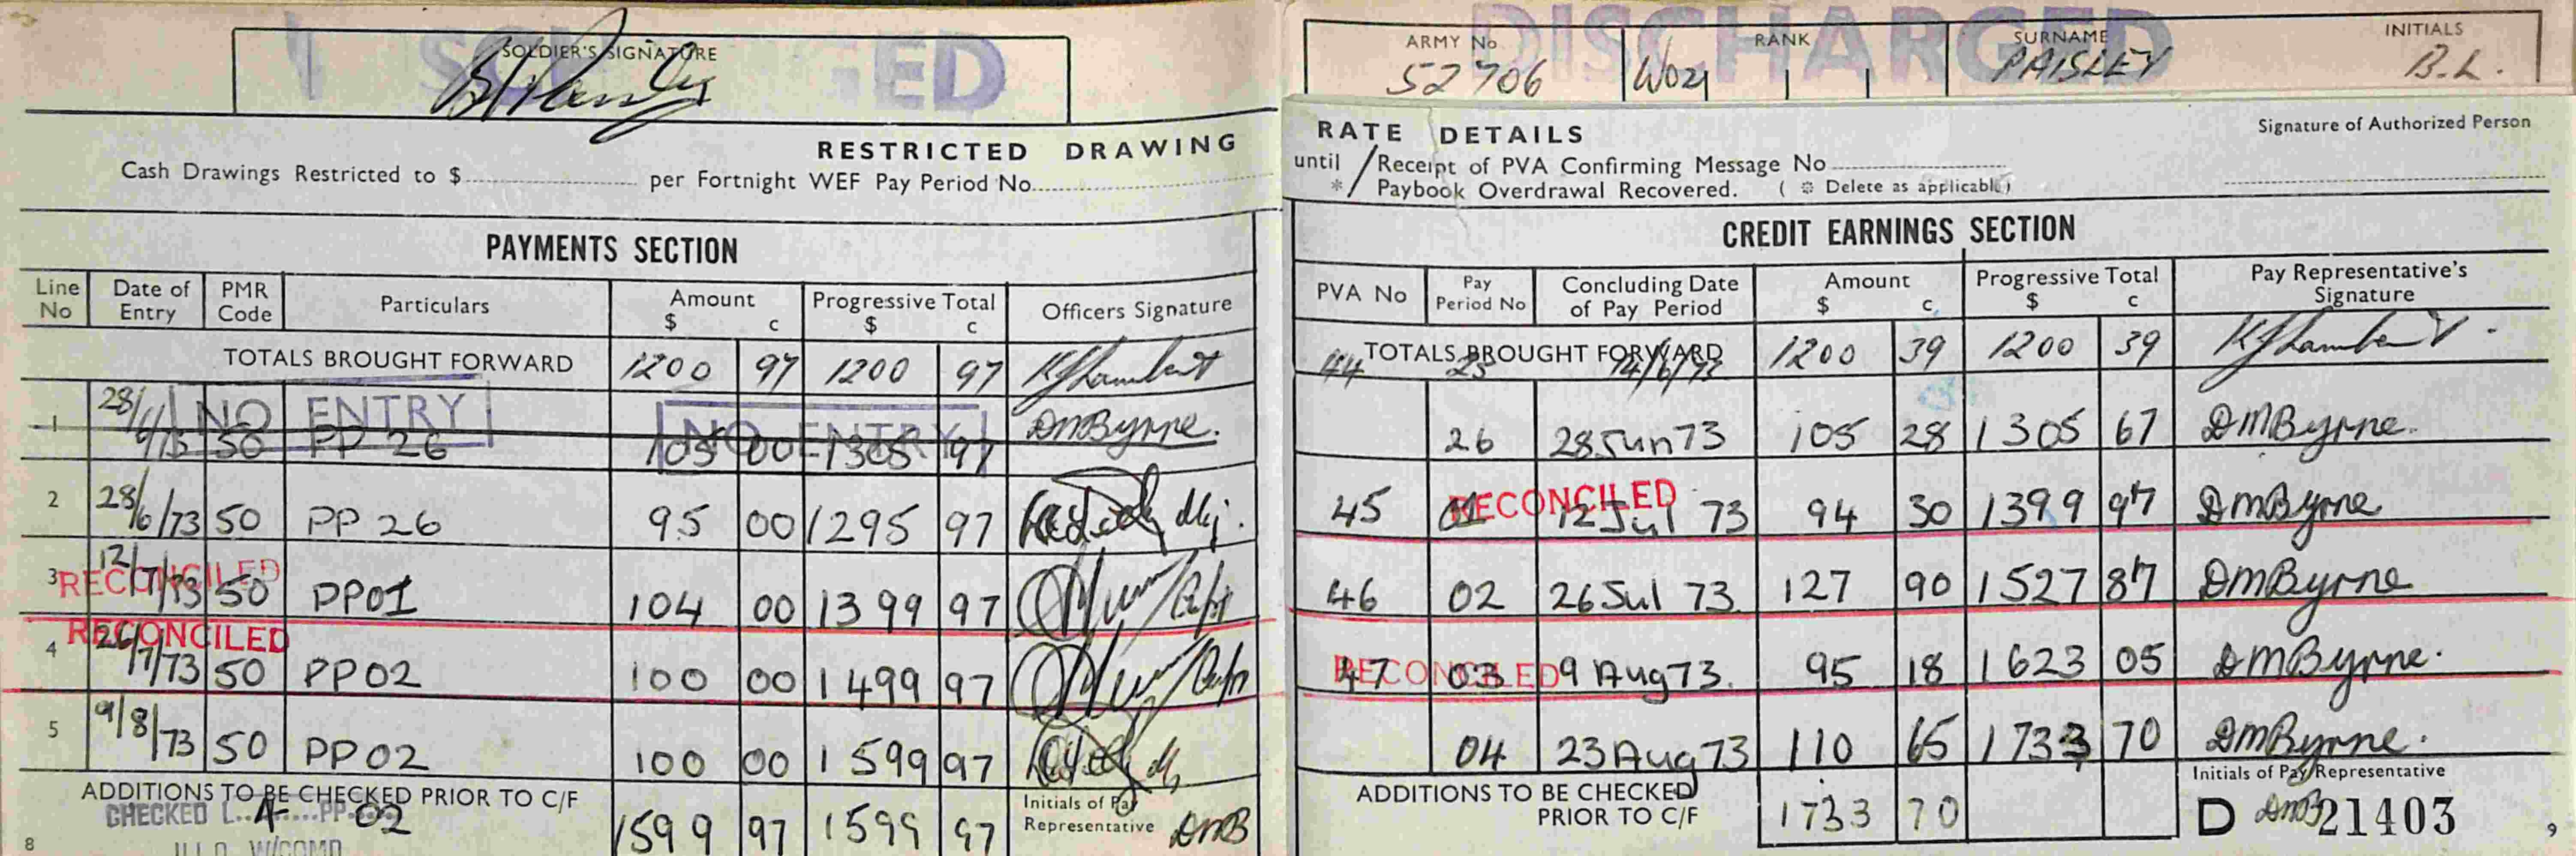 DISCHARGED
SOLDIER'S SIGNATURE
ARMY No RANK SURNAME INITIALS
52706 WO2 PAISLEY B.L.
RESTRICTED DRAWING RATE DETAILS
Cash Drawings Restricted to $ per Fortnight WEF Pay Period No. until / Receipt of PVA Confirming Message No
* / Paybook Overdrawal Recovered. ( * Delete as applicable)
Signature of Authorized Person
PAYMENTS SECTION
Line No Date of Entry PMR Code Particulars Amount $ c Progressive Total $ c Officers Signature
TOTALS BROUGHT FORWARD 1200 97 1200 97 KJLambert
1 28/6/73 50 PP 26 105 00 1305 97 DMByrne.
NO ENTRY NO ENTRY
2 28/6/73 50 PP 26 95 00 1295 97 Maj.
3 12/7/73 50 PP01 104 00 1399 97 Capt
RECONCILED
4 26/7/73 50 PP02 100 00 1499 97 Capt
RECONCILED
5 9/8/73 50 PP02 100 00 1599 97
ADDITIONS TO BE CHECKED PRIOR TO C/F 1599 97 1599 97 Initials of Pay Representative DMB
CHECKED L..A.....PP 02
8
CREDIT EARNINGS SECTION
PVA No Pay Period No Concluding Date of Pay Period Amount $ c Progressive Total $ c Pay Representative's Signature
TOTALS BROUGHT FORWARD 1200 39 1200 39 KJLambert
44 25 14/6/73
26 28 Jun 73 105 28 1305 67 DMByrne.
45 01 12 Jul 73 94 30 1399 97 DMByrne
RECONCILED
46 02 26 Jul 73 127 90 1527 87 DMByrne
47 03 9 Aug 73. 95 18 1623 05 DMByrne.
RECONCILED
04 23 Aug 73 110 65 1733 70 DMByrne.
ADDITIONS TO BE CHECKED PRIOR TO C/F 1733 70
Initials of Pay Representative
D DMB 21403
9